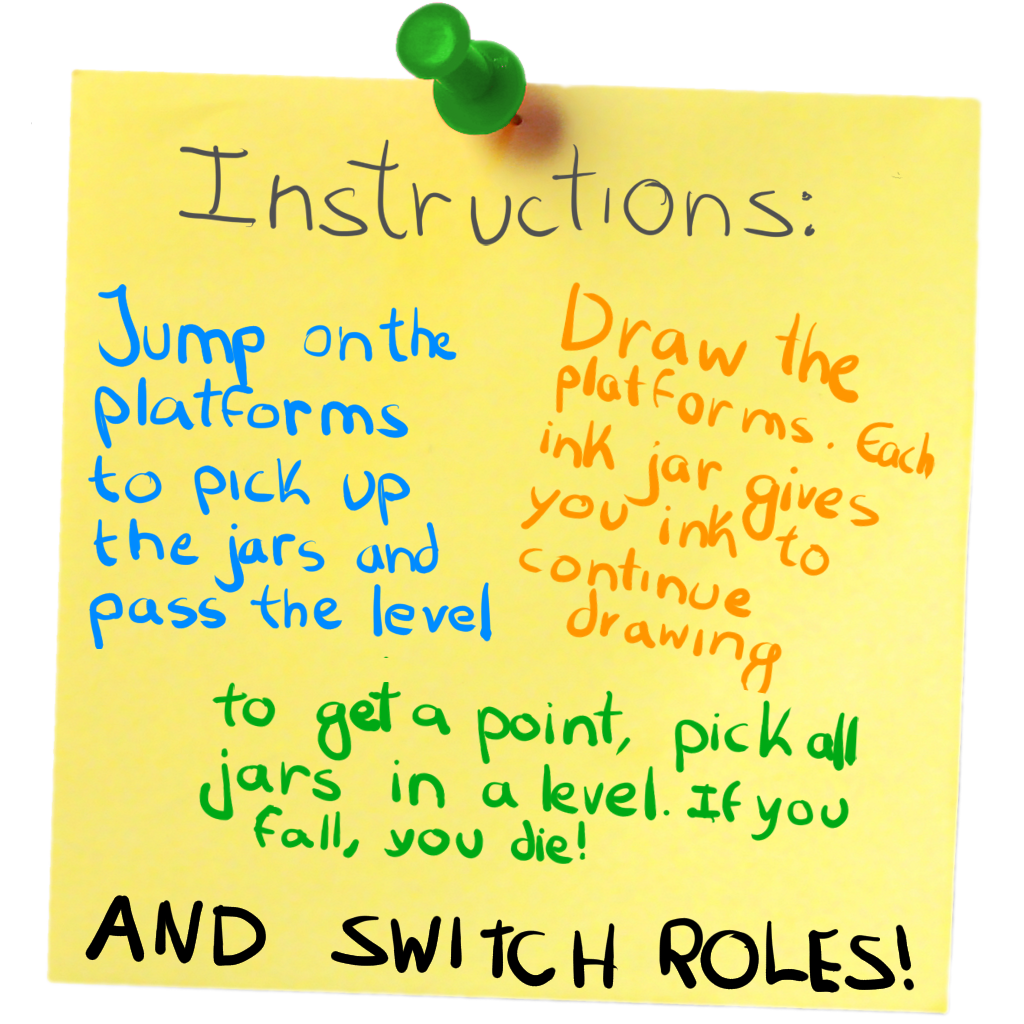 Instructions:
Jump on the
platforms
to pick up
the jars and
pass the level
Draw the
platforms. Each
ink jar gives
you ink to
continue
drawing
to get a point, pick all
jars in a level. If you
fall, you die!
AND SWITCH ROLES!